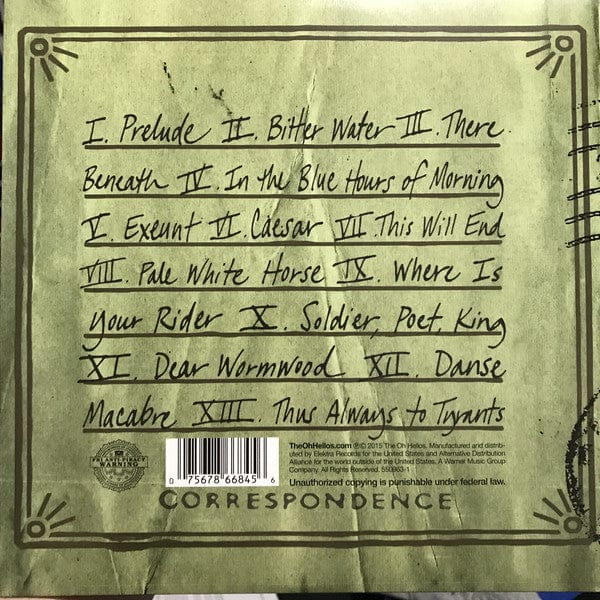 I. Prelude II. Bitter Water III. There
Beneath IV. In the Blue Hours of Morning
V. Exeunt VI. Caesar VII. This Will End
VIII. Pale White Horse IX. Where Is
Your Rider X. Soldier, Poet, King
XI. Dear Wormwood XII. Danse
Macabre XIII. Thus Always to Tyrants
FBI ANTI-PIRACY
WARNING
0 75678 66845 6
TheOhHellos.com ℗© 2015 The Oh Hellos. Manufactured and distrib-
uted by Elektra Records for the United States and Alternative Distribution
Alliance for the world outside of the United States. A Warner Music Group
Company. All Rights Reserved. 550863-1
Unauthorized copying is punishable under federal law.
CORRESPONDENCE